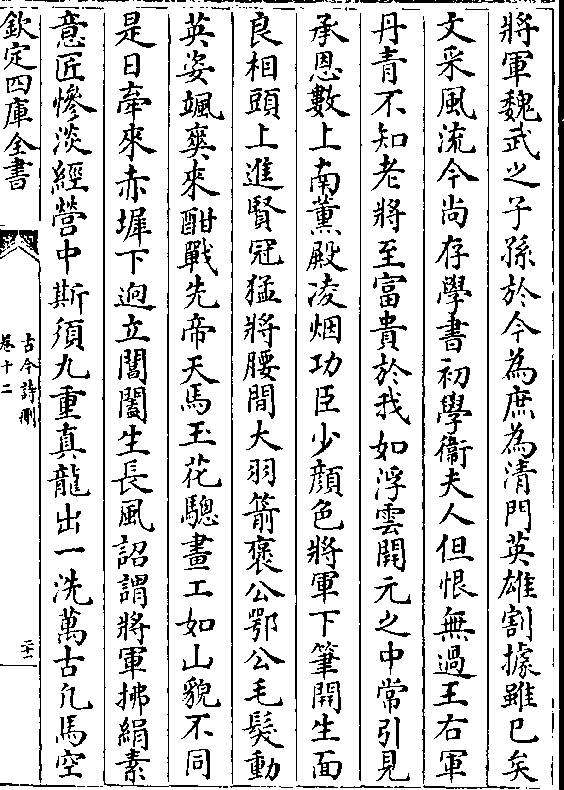 將軍魏武之子孫於今為庶為清門英雄割據雖已矣
文采風流今尚存學書初學衞夫人但恨無過王右軍
丹青不知老將至富貴於我如浮雲開元之中常引見
承恩數上南薰殿凌烟功臣少顔色將軍下筆開生面
良相頭上進賢冠猛將腰間大羽箭褒公鄂公毛髮動
英姿颯爽來酣戰先帝天馬玉花驄畫工如山貌不同
是日牽來赤墀下逈立閶闔生長風詔謂將軍拂絹素
意匠慘淡經營中斯須九重真龍出一洗萬古凡馬空
欽定四庫全書
古今詩刪
卷十二
二十一